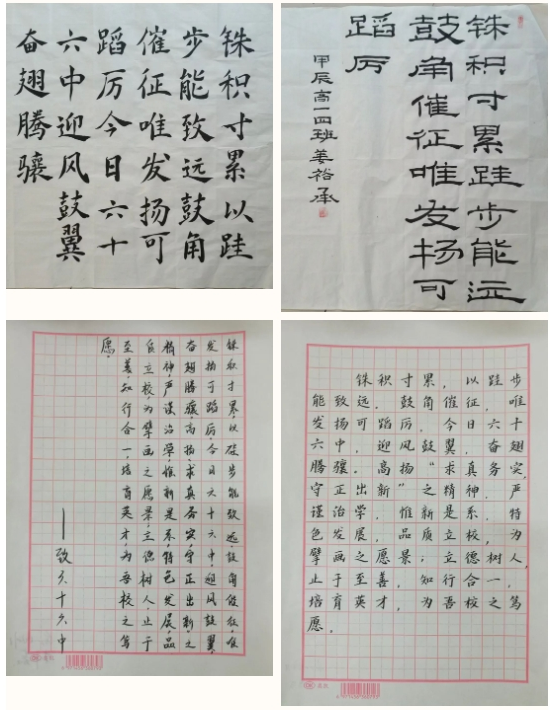 铢积寸累以跬
步能致远鼓角
催征唯发扬可
蹈厉今日六十
六中迎风鼓翼
奋翅腾骧
铢积寸累跬步能远
鼓角催征唯发扬可
蹈厉
甲辰高一四班姜裕承
铢积寸累,以跬步能致远,鼓角催征,唯
发扬可蹈厉,今日六十六中,迎风鼓翼,
奋翅腾骧,高扬,求真务实,守正出新之
精神,严谨治学,惟新是系,特色发展,品
质立校,为擘画之愿景,立德树人,止于
至善,知行合一,培育英才为吾校之笃
愿。
——致六十六中
铢积寸累,以跬步
能致远,鼓角催征,唯
发扬可蹈厉,今日六十
六中,迎风鼓翼,奋翅
腾骧。高扬“求真务实,
守正出新”之精神,严
谨治学,惟新是系,特
色发展,品质立校,为
擘画之愿景;立德树人,
止于至善,知行合一,
培育英才,为吾校之笃
愿。